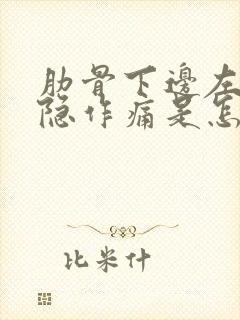 肋骨下邊左
隐作痛是怎
比米什